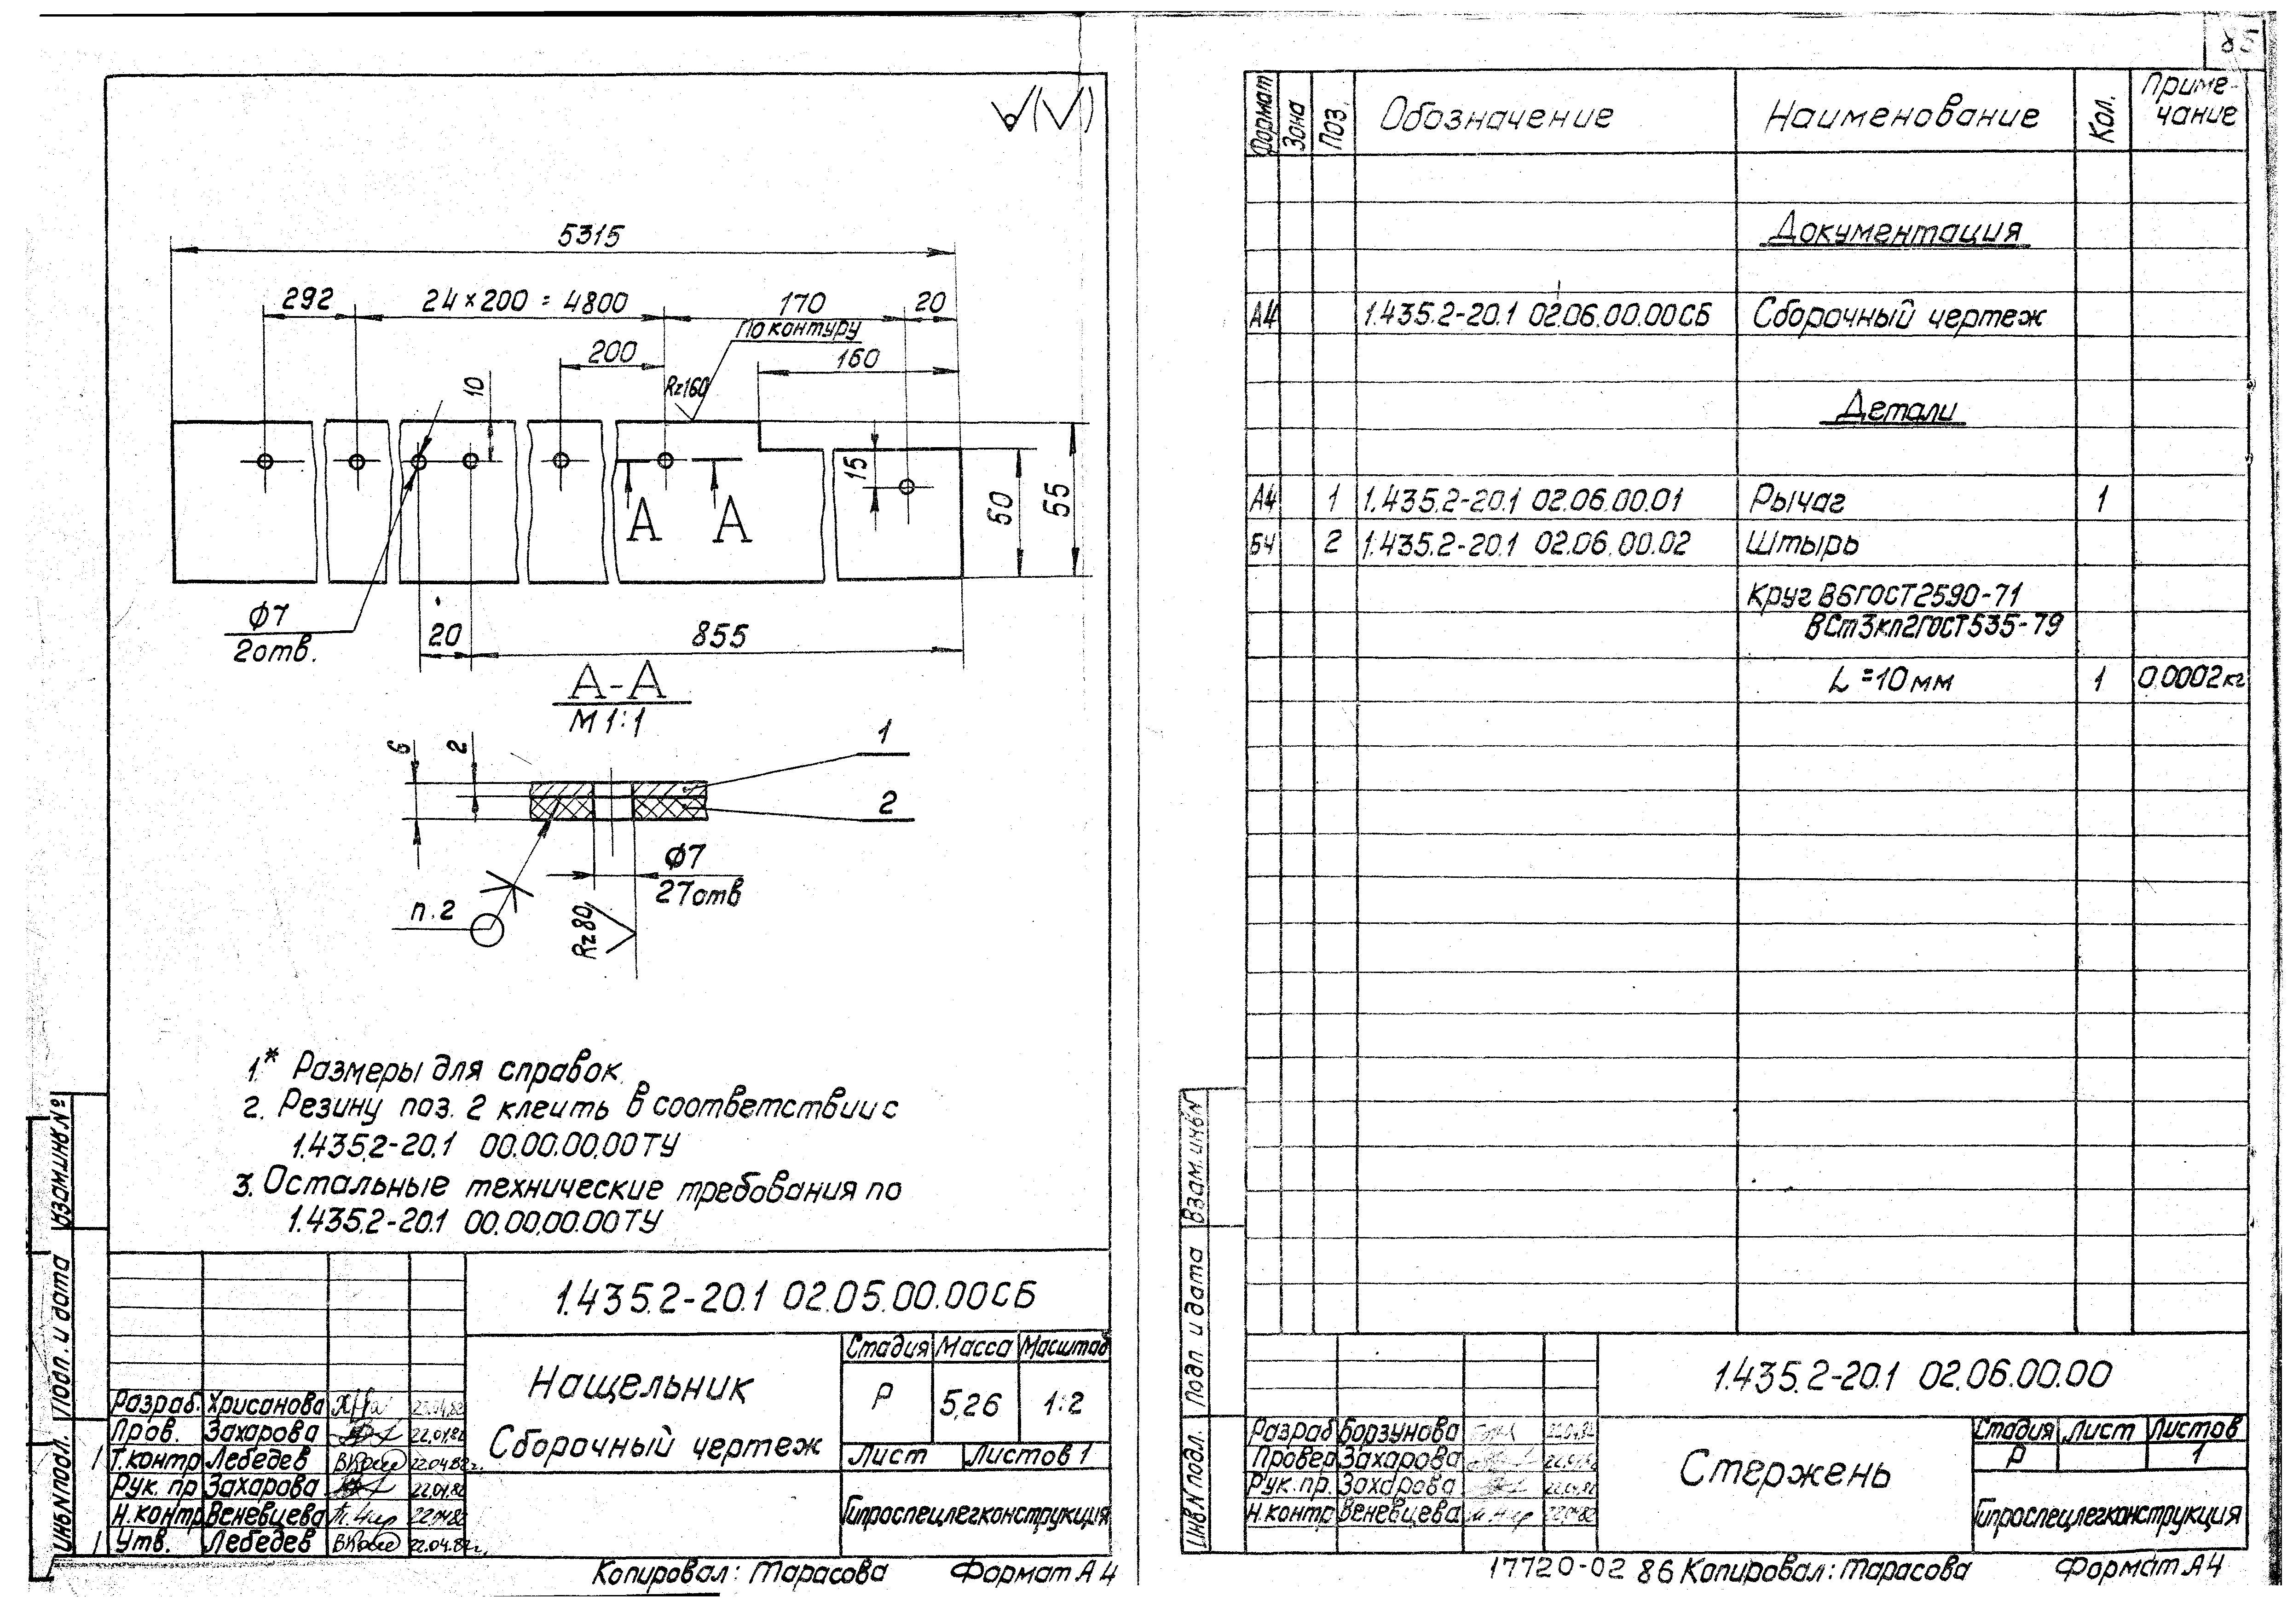 √(√)
5315
292
24×200=4800
170
20
По контуру
200
160
Rz160
10
15
50
55
А А
Ф7
2отв.
20
855
А-А
М 1:1
6
2
1
2
Ф7
27отв
п.2
Rz80
1.* Размеры для справок.
2. Резину поз. 2 клеить в соответствии с
1.435.2-20.1 00.00.00.00ТУ
3. Остальные технические требования по
1.435.2-20.1 00.00.00.00ТУ
Взам.инв.№
Подп. и дата
Инв.№подл.
1.435.2-20.1 02.05.00.00СБ
Нащельник
Сборочный чертеж
Стадия Масса Масштаб
Р 5,26 1:2
Лист Листов 1
Гипроспецлегконструкция
Разраб. Хрисанова 22.04.82
Пров. Захарова 22.04.82
Т.контр Лебедев 22.04.82г.
Рук. пр Захарова 22.04.82
Н.контр Веневцева 22.04.82
Утв. Лебедев 22.04.82г.
Копировал: Тарасова Формат А4
85
Формат Зона Поз. Обозначение Наименование Кол. Приме-
чание
Документация
А4 1.435.2-20.1 02.06.00.00СБ Сборочный чертеж
Детали
А4 1 1.435.2-20.1 02.06.00.01 Рычаг 1
БЧ 2 1.435.2-20.1 02.06.00.02 Штырь
Круг В6ГОСТ2590-71
ВСт3кп2ГОСТ535-79
L=10мм 1 0,0002кг
Взам.инв№
Подп и дата
Инв.№подл.
1.435.2-20.1 02.06.00.00
Стержень
Стадия Лист Листов
Р 1
Гипроспецлегконструкция
Разраб Борзунова 22.04.82
Провер Захарова 22.04.82
Рук. пр. Захарова 22.04.82
Н.контр Веневцева 22.04.82
17720-02 86 Копировал: Тарасова Формат А4